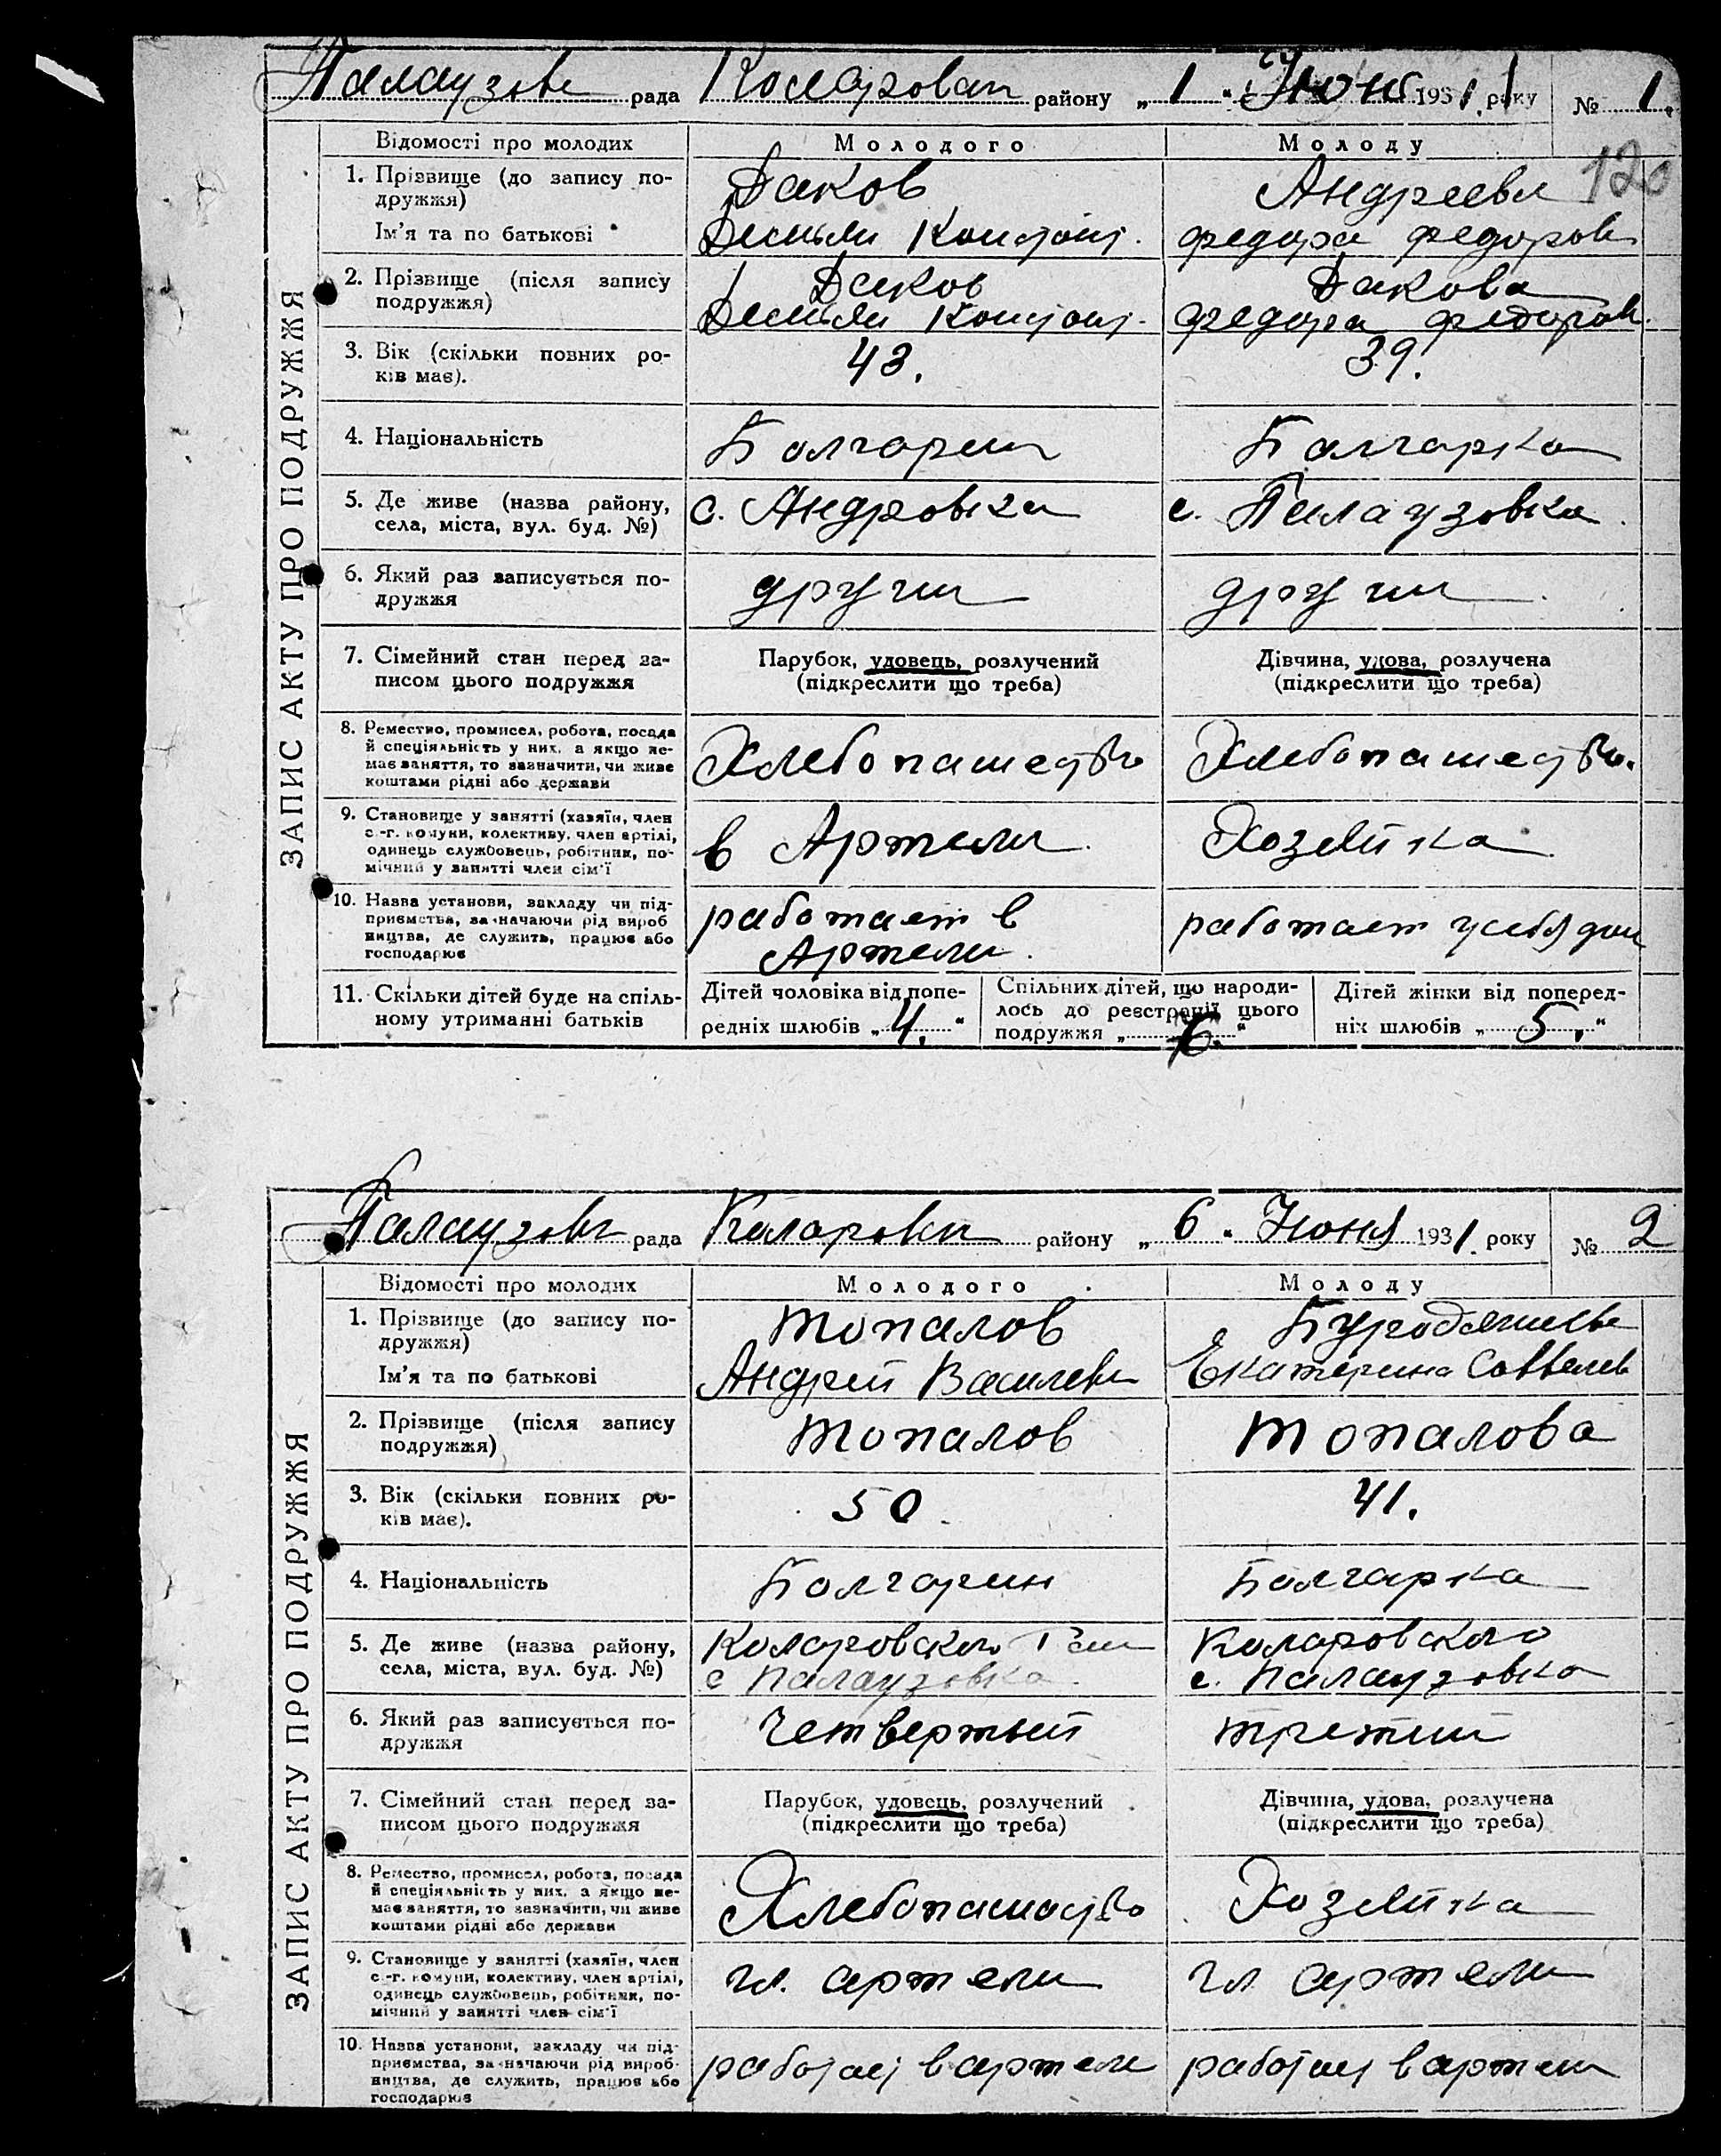 Палаузове рада Коларовск району „1“ Июня 1931 року № 1.
120
ЗАПИС АКТУ ПРО ПОДРУЖЖЯ
Відомості про молодих Молодого Молоду
1. Прізвище (до запису по-
дружжя) Даков Андреева
Ім'я та по батькові Демьян Констант. Федора Федоров
2. Прізвище (після запису Даков Дакова
подружжя) Демьян Констант. Федора Федоров.
3. Вік (скільки повних ро- 43. 39.
ків має).
4. Національність Болгарин Балгарка
5. Де живе (назва району, с. Андровка с. Палаузовка
села, міста, вул. буд. №)
6. Який раз записується по- други други
дружжя
7. Сімейний стан перед за- Парубок, удовець, розлучений Дівчина, удова, розлучена
писом цього подружжя (підкреслити що треба) (підкреслити що треба)
8. Ремество, промисел, робота, посада
й спеціяльність у них, а якщо не-
має заняття, то зазначити, чи живе Хлебопашество Хлебопашество.
коштами рідні або держави
9. Становище у занятті (хазяїн, член
с.-г. комуни, колективу, член артілі,
одинець службовець, робітник, по- в Артели Хозяйка
мічний у занятті член сім'ї
10. Назва установи, закладу чи під-
приємства, зазначаючи рід вироб работает в работает у себя дом
ництва, де служить, працює або Артели.
господарює
11. Скільки дітей буде на спіль- Дітей чоловіка від попе- Спільних дітей, що народи- Дітей жінки від поперед-
ному утриманні батьків редніх шлюбів „4.“ лось до реєстрації цього ніх шлюбів „5.“
подружжя
Палаузовк рада Коларовск району „6“ Июня 1931. року № 2
ЗАПИС АКТУ ПРО ПОДРУЖЖЯ
Відомості про молодих Молодого Молоду
1. Прізвище (до запису по- Топалов
дружжя)
Ім'я та по батькові Андрей Василеви Екатерина Саввелев
2. Прізвище (після запису Топалов Топалова
подружжя)
3. Вік (скільки повних ро- 50. 41.
ків має).
4. Національність Болгарин Болгарка
5. Де живе (назва району, Коларовского Рай Коларовского
села, міста, вул. буд. №) с Палаузовка. с. Палаузовка
6. Який раз записується по- Четвертый третий
дружжя
7. Сімейний стан перед за- Парубок, удовець, розлучений Дівчина, удова, розлучена
писом цього подружжя (підкреслити що треба) (підкреслити що треба)
8. Ремество, промисел, робота, посада
й спеціяльність у них, а якщо не-
має заняття, то зазначити, чи живе Хлебопашоство Хозяйка
коштами рідні або держави
9. Становище у занятті (хазяїн, член
с.-г. комуни, колективу, член артілі, чл. артели чл артели
одинець службовець, робітник, по-
мічний у занятті член сім'ї
10. Назва установи, закладу чи під-
приємства, зазначаючи рід вироб- работает в артели работает в артели
ництва, де служить, працює або
господарює